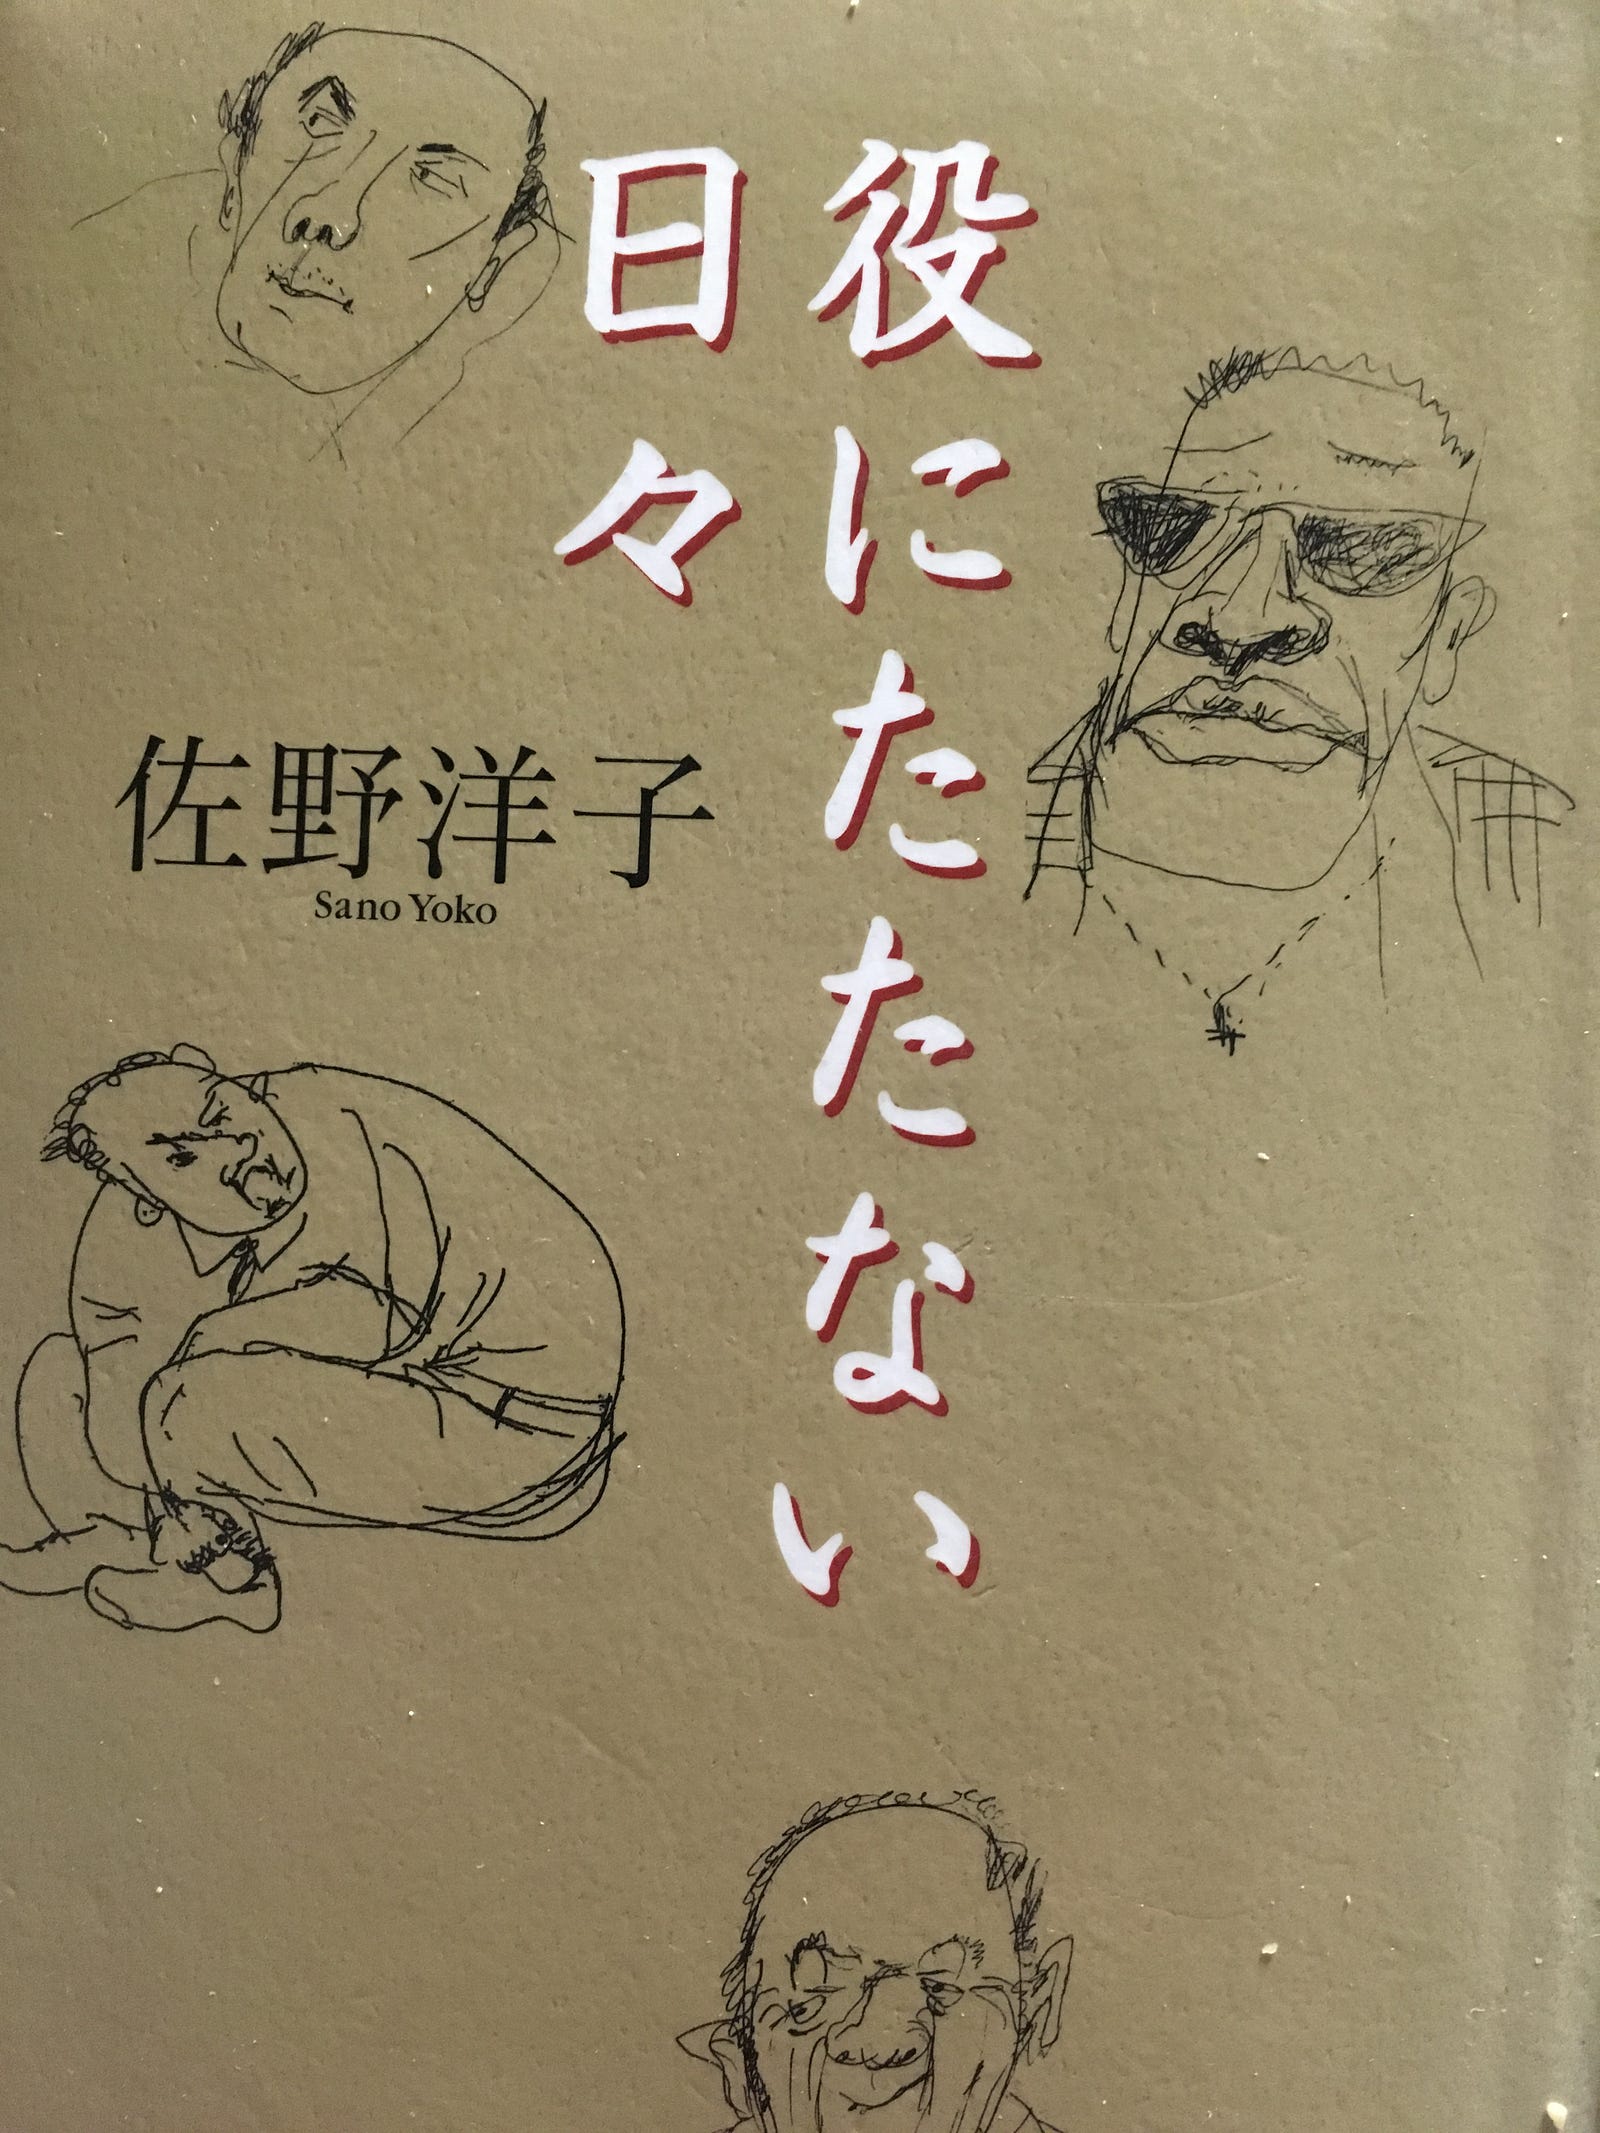 役にたたない
日々
佐野洋子
Sano Yoko